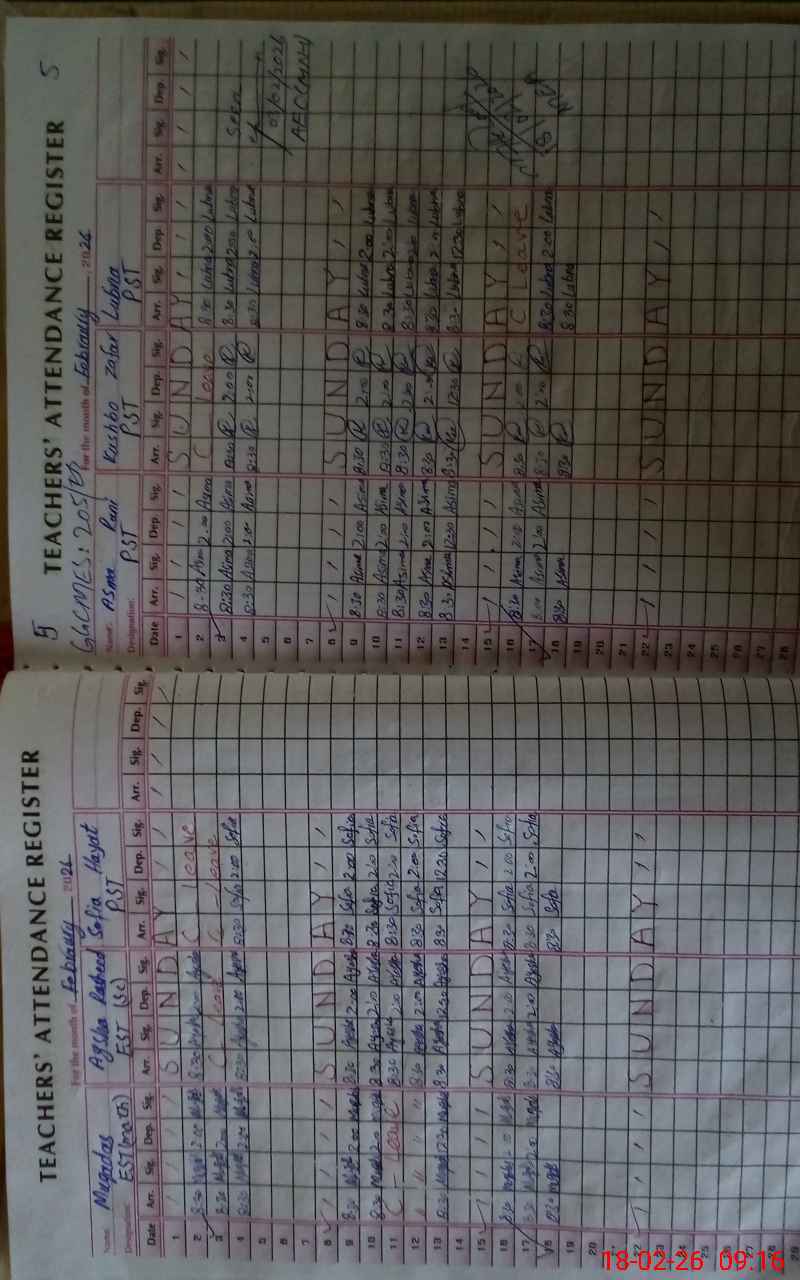 TEACHERS' ATTENDANCE REGISTER
For the month of February 2026
Name: Muqadas Aysha Rasheed Sofia Hayat
Designation: EST (math) EST (Sc) PST
Date Arr. Sig. Dep. Sig. Arr. Sig. Dep. Sig. Arr. Sig. Dep. Sig. Arr. Sig. Dep. Sig.
1 S U N D A Y
2 8:30 2:00 8:30 2:00 C leave
3 8:30 2:00 C leave C leave
4 8:30 2:00 8:30 Aysha 2:00 Aysha 8:30 Sofia 2:00 Sofia
5
6
7
8 S U N D A Y
9 8:30 2:00 8:30 Aysha 2:00 Aysha 8:30 Sofia 2:00 Sofia
10 8:30 2:00 8:30 Aysha 2:00 Aysha 8:30 Sofia 2:00 Sofia
11 C leave 8:30 Aysha 2:00 Aysha 8:30 Sofia 2:00 Sofia
12 " " " " 8:30 Aysha 2:00 Aysha 8:30 Sofia 2:00 Sofia
13 8:30 12:30 8:30 Aysha 12:30 Aysha 8:30 Sofia 12:30 Sofia
14
15 S U N D A Y
16 8:30 2:00 8:30 Aysha 2:00 Aysha 8:30 Sofia 2:00 Sofia
17 8:30 2:00 8:30 Aysha 2:00 Aysha 8:30 Sofia 2:00 Sofia
18 8:30 8:30 Aysha 8:30 Sofia
19
20
21
22 S U N D A Y
23
24
25
26
27
28
29
5 TEACHERS' ATTENDANCE REGISTER 5
GGCMES: 205/
For the month of February, 2026
Name: Asma Rani Kashbo Zafar Lubna
Designation: PST PST PST
Date Arr. Sig. Dep. Sig. Arr. Sig. Dep. Sig. Arr. Sig. Dep. Sig. Arr. Sig. Dep. Sig.
1 S U N D A Y
2 8:30 Asma 2:00 Asma C leave 8:30 Lubna 2:00 Lubna
3 8:30 Asma 2:00 Asma 8:30 2:00 8:30 Lubna 2:00 Lubna
4 8:30 Asma 2:00 Asma 8:30 2:00 8:30 Lubna 2:00 Lubna
03/02/2026
5
6
7
8 S U N D A Y
9 8:30 Asma 2:00 Asma 8:30 2:00 8:30 Lubna 2:00 Lubna
10 8:30 Asma 2:00 Asma 8:30 2:00 8:30 Lubna 2:00 Lubna
11 8:30 Asma 2:00 Asma 8:30 2:00 8:30 Lubna 2:00 Lubna
12 8:30 Asma 2:00 Asma 8:30 2:00 8:30 Lubna 2:00 Lubna
13 8:30 Asma 12:30 Asma 8:30 12:30 8:30 Lubna 12:30 Lubna
14
15 S U N D A Y
16 8:30 Asma 2:00 Asma 8:30 2:00 C Leave
17 8:00 Asma 2:00 Asma 8:30 2:00 8:30 Lubna 2:00 Lubna
18 8:30 Asma 8:30 8:30 Lubna
19
20
21
22 S U N D A Y
23
24
25
26
27
28
18-02-26 09:16